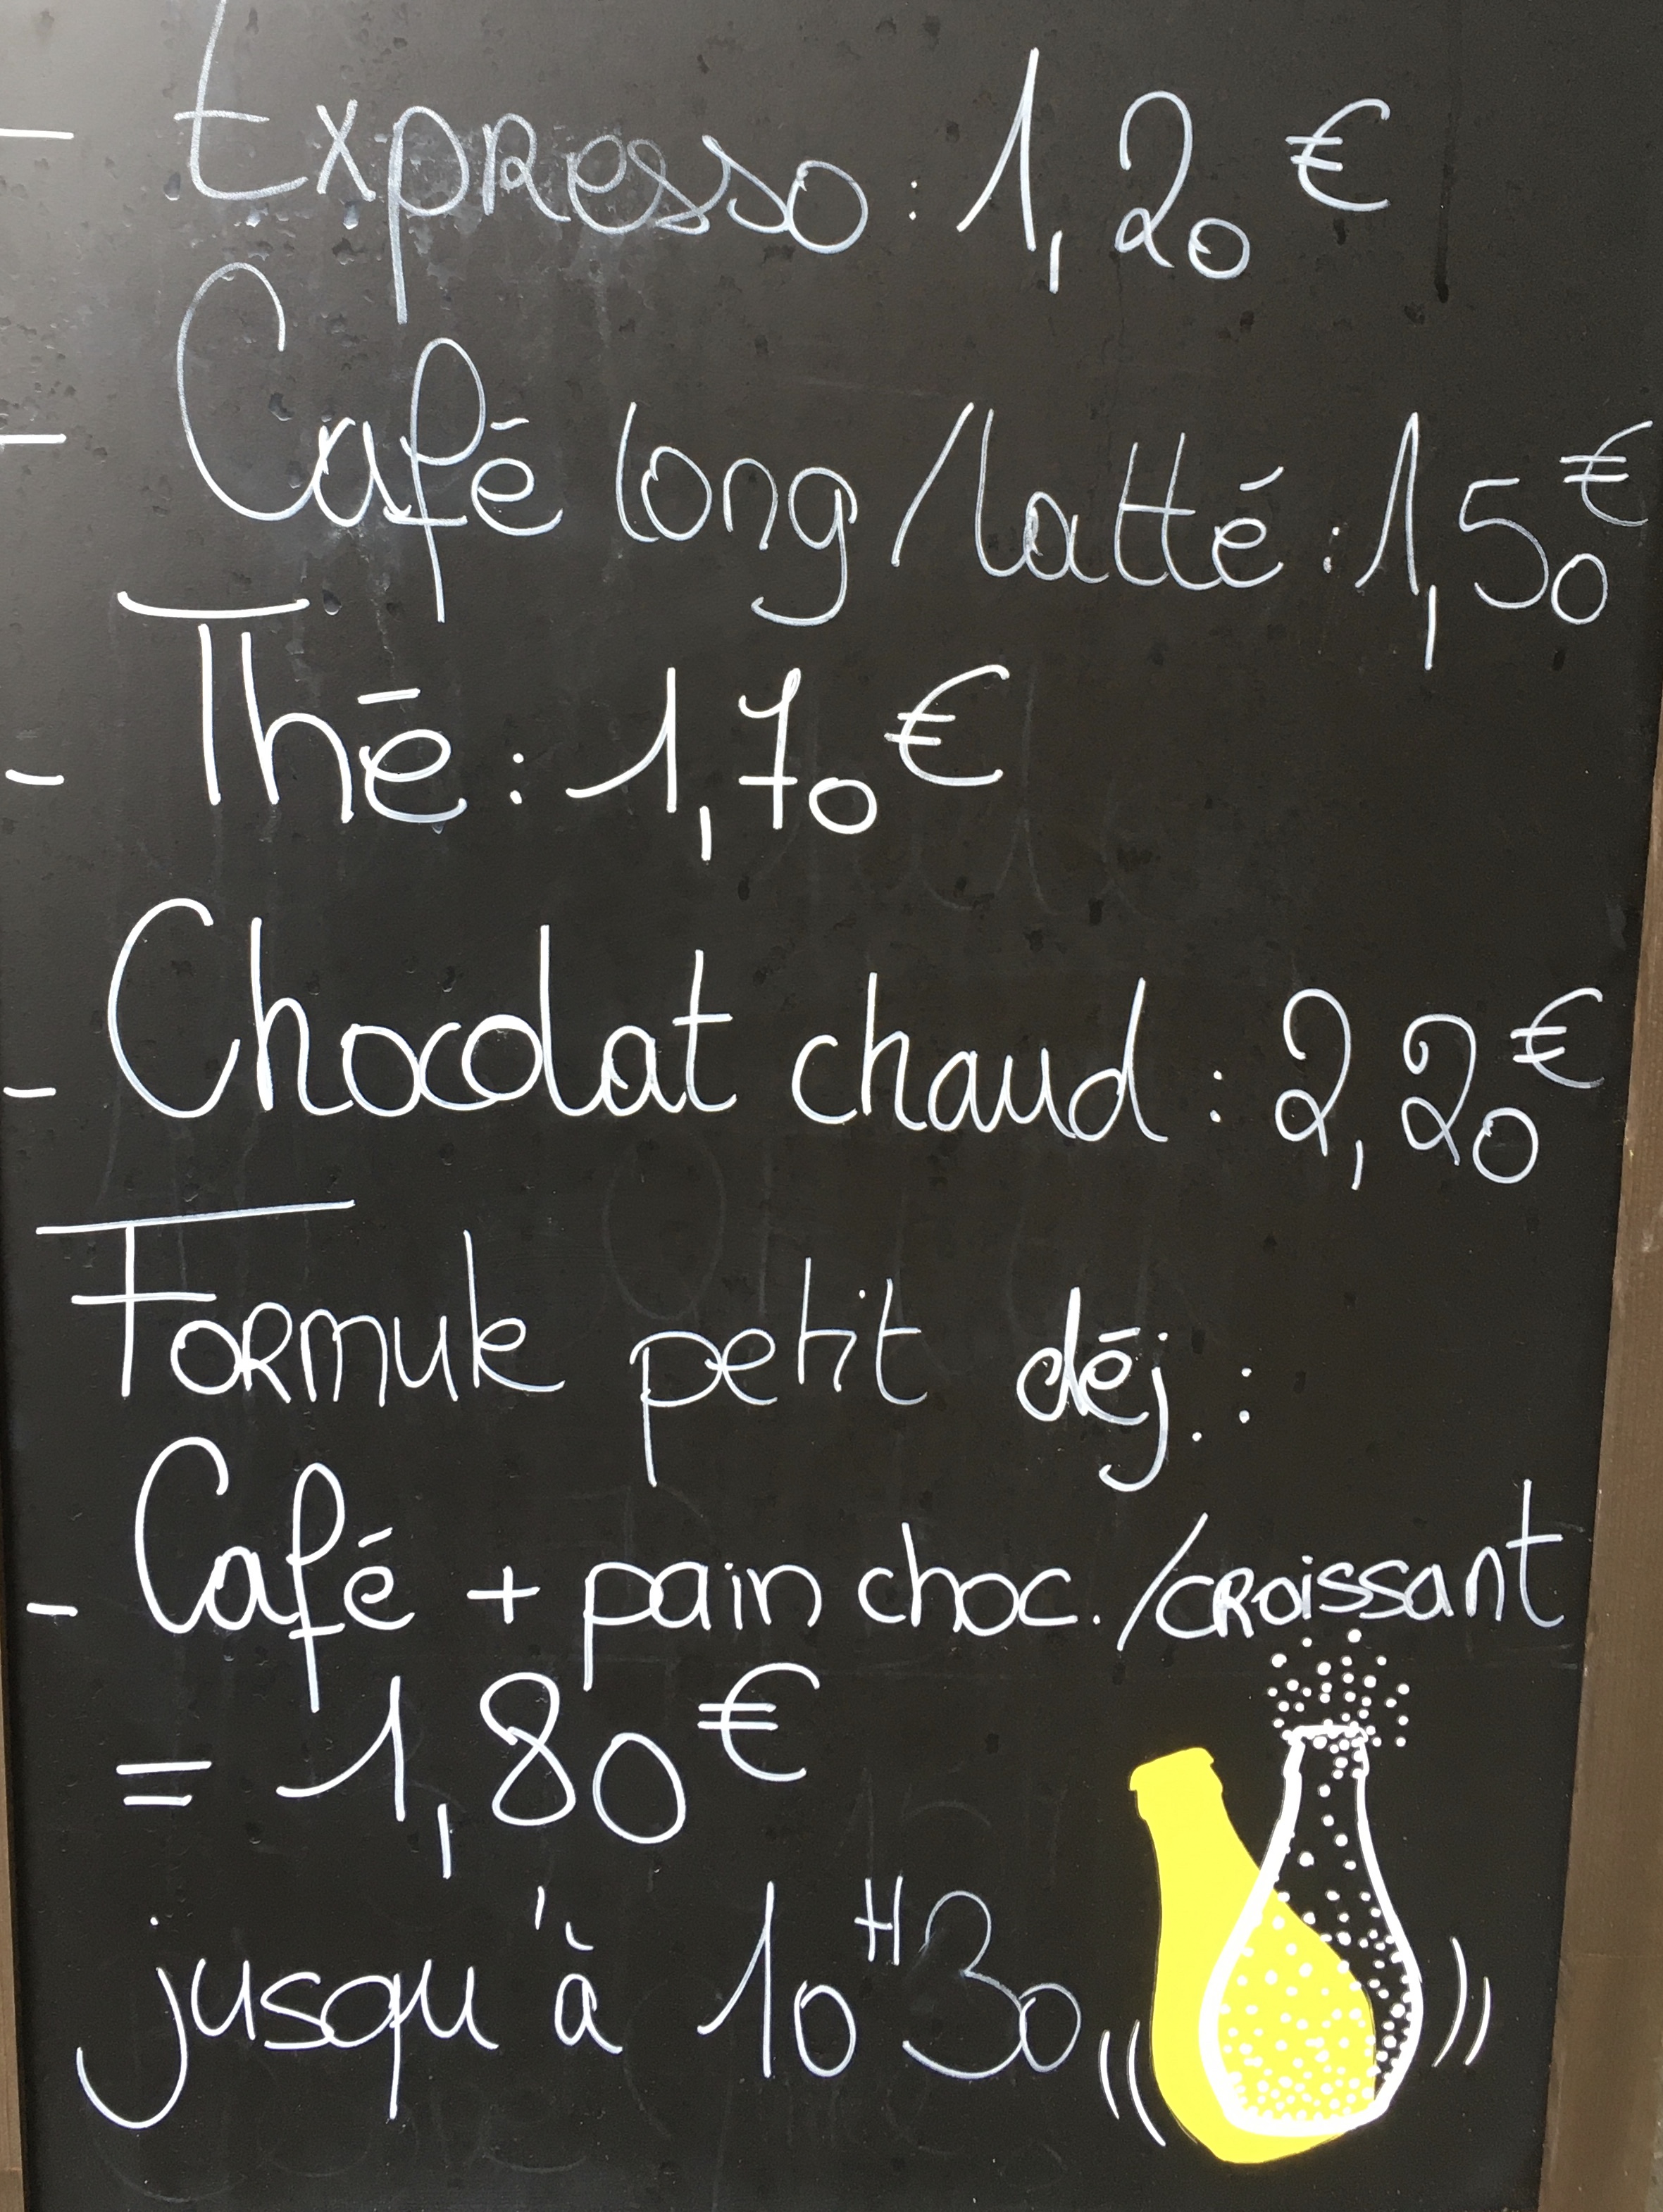 - Expresso : 1,20 €
- Café long/latté : 1,50 €
- Thé : 1,70 €
- Chocolat chaud : 2,20 €
Formule petit déj. :
- Café + pain choc. /croissant
= 1,80 €
jusqu'à 10H30